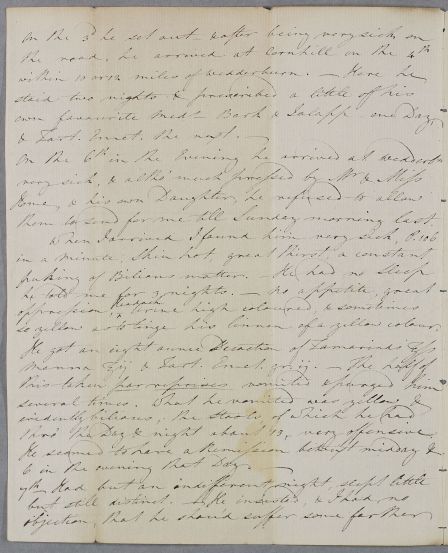 On the 3d he set out & after being very sick on
the road, he arrived at Cornhill on the 4th
within 10 or 12 miles of Wedderburn. — Here he
staid two nights & prescribed a little of his
own favourite medt. Bark & Jalapp one Day,
& Tart. Emet. the next. —
On the 6th in the Evening he arrived at Wedderburn
very sick, & altho' much pressed by Mr & Miss
Home, & his own Daughter, he refused to allow
them to send for me till Sunday morning last.
When I arrived I found him very sick, P. 106
in a minute, Skin hot, great thirst, a constant
puking of Bilious matter. — He had no Sleep
he told me for 3 nights. — No appetite, great
oppression, urine high coloured, & sometimes
so yellow as to tinge his linnen of a yellow colour.
He got an eight ounce Decoction of Tamarinds
Manna & Tart. Emet. — The half of
this taken par reprises vomited & purged him
several times. What he vomited was yellow &
evidently bilious, the Stools of which he had
thro' the Day & night about 13, very offensive.
He seemed to have a Remission betwixt midday &
6 in the evening that Day. —
9th Had but an indifferent night, slept little
but still distinct. — He insisted, & I had no
objection, that he should suffer some farther